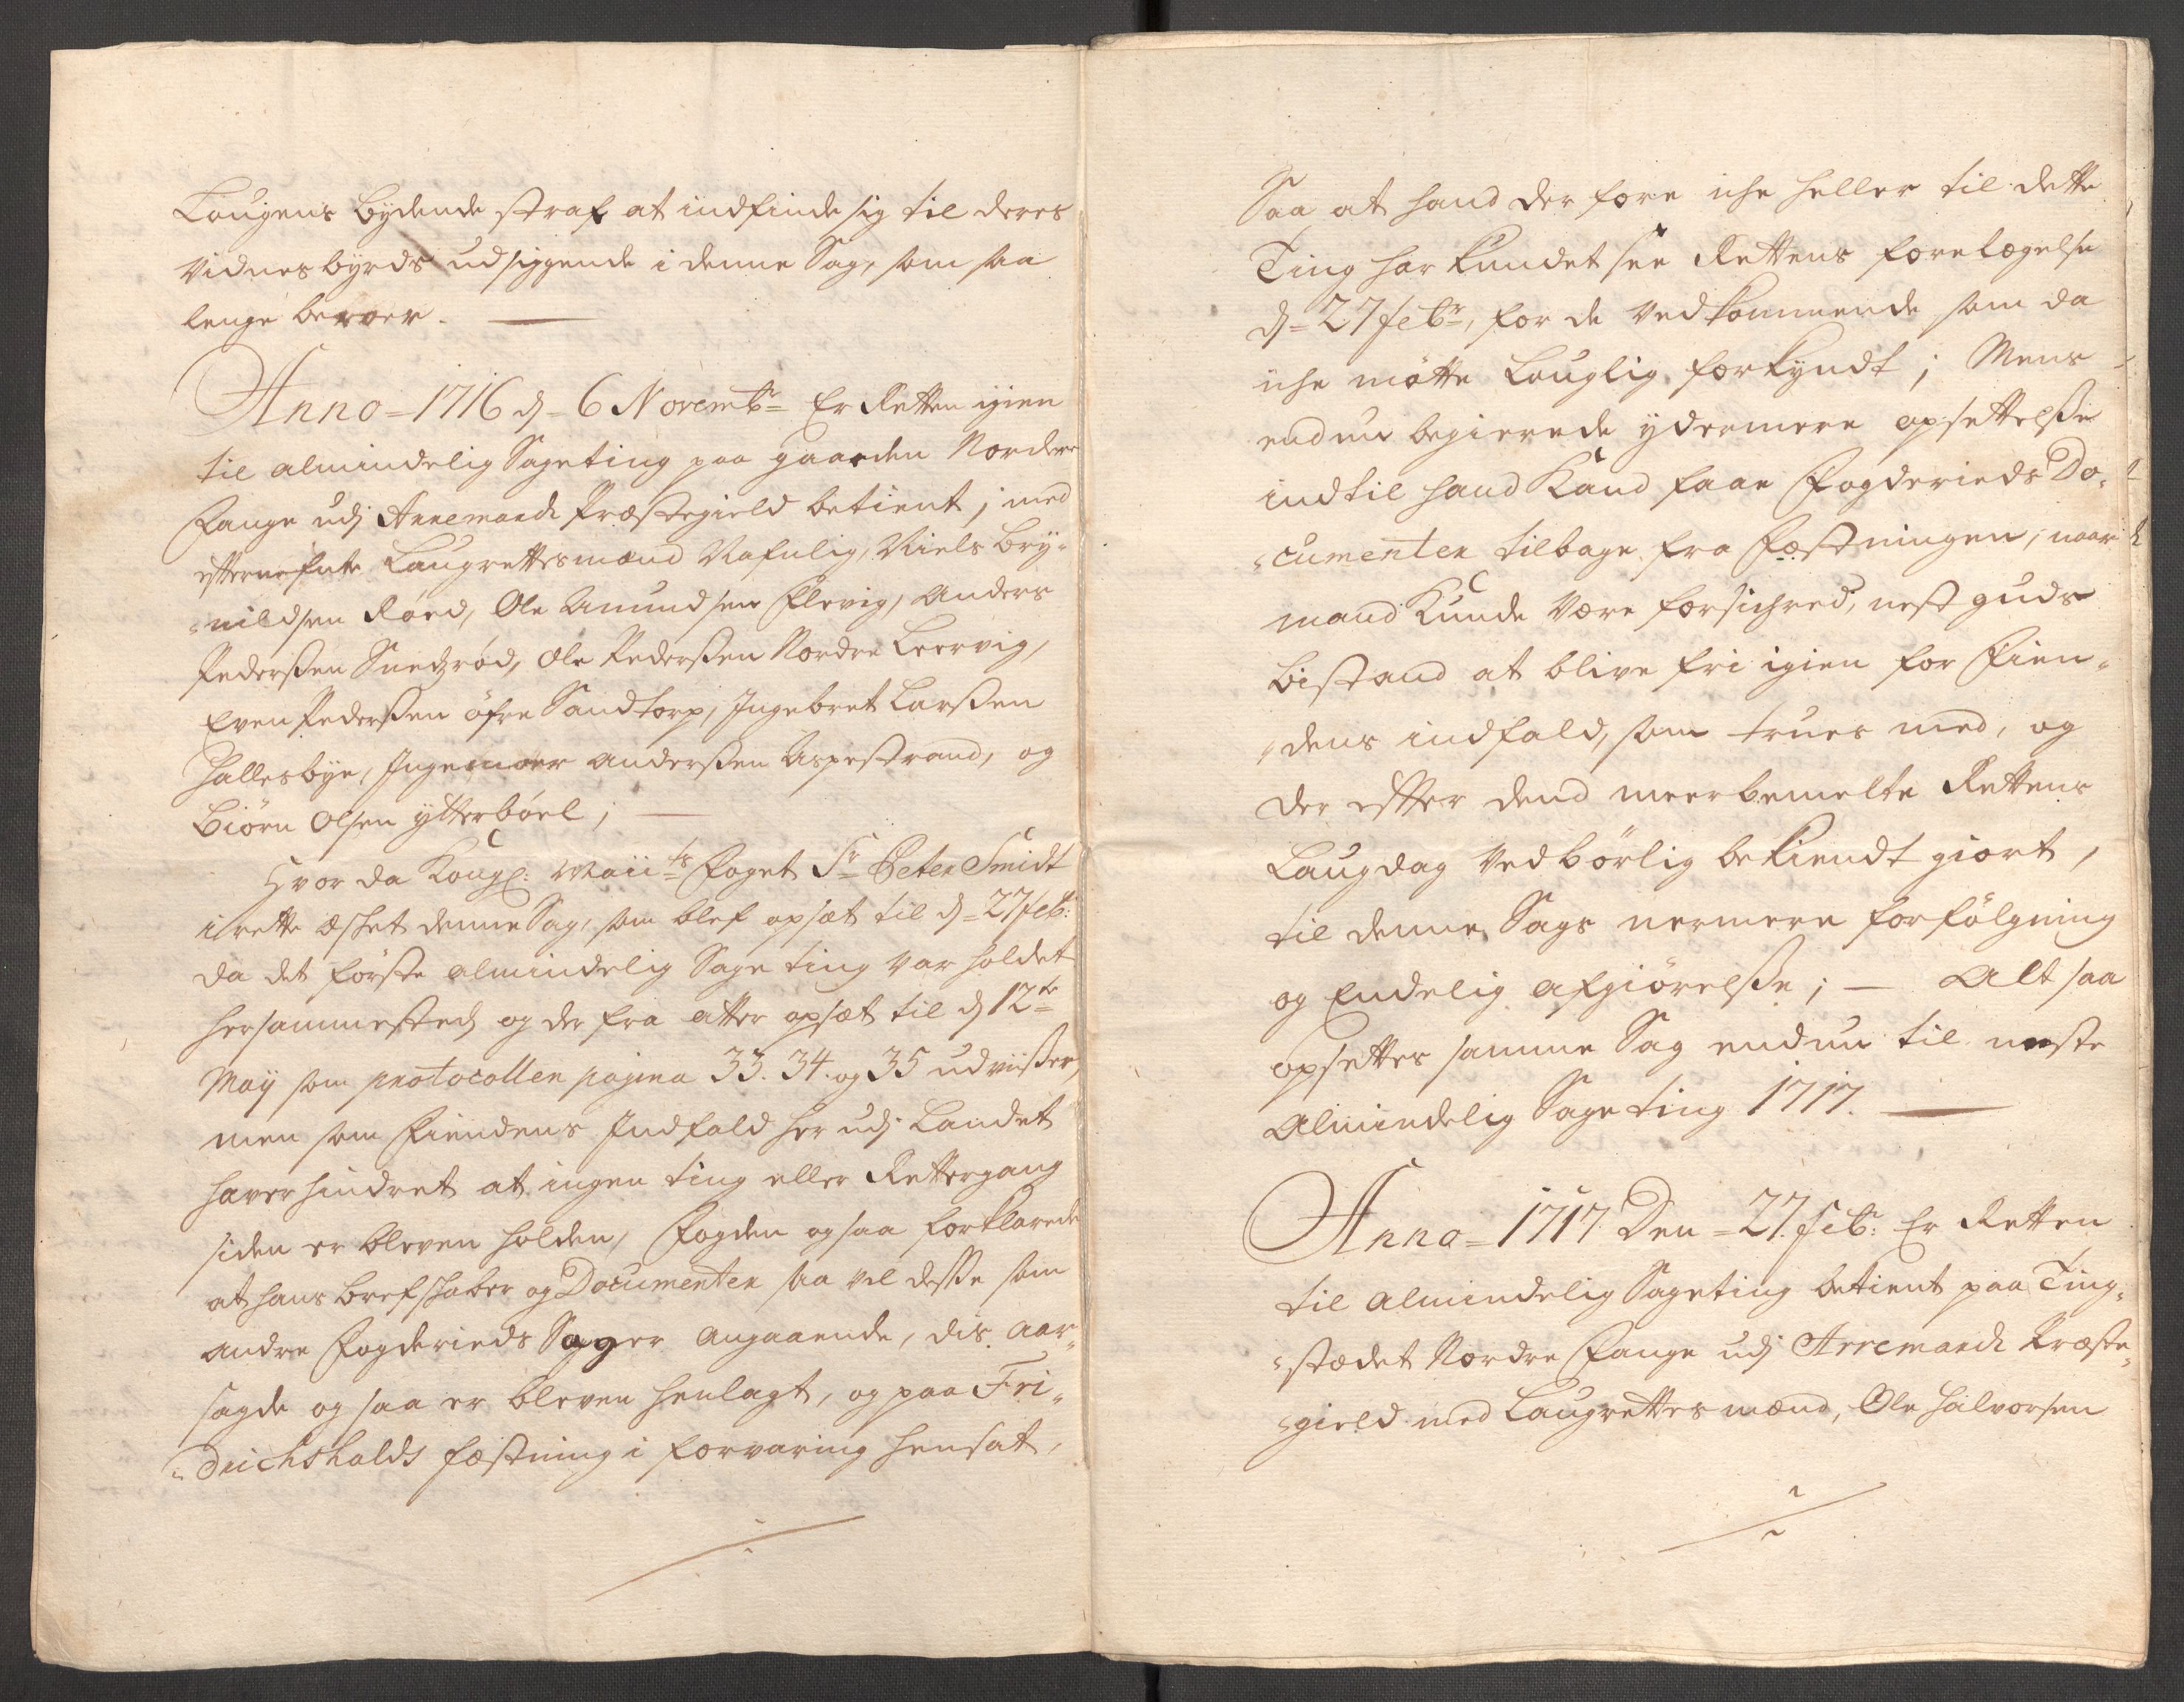 Laugens bydende straf at indfinde sig til deres
Vidnesbyrds udsiggende i denne Sag, som saa
lenge beroer.
Anno=1716 d=6 Novembr= Er Retten igien
til almindelig Sageting paa gaarden Nordre
Fange udj Arremarck Præstegield betient, med
effternefnte Laugrettesmænd Nafnlig, Niels Bry-
-nildsen Röed, Ole Amundsen Elevig, Anders
Pederssen Snedzröd, Ole Pederssen Nordre Leervig,
Even Pederssen öfre Sandtorp, Ingebret Larssen
Hallesbye, Ingemoer Anderssen Aspestrand, og
Biörn Olsen ytterböel;
Hvor da Kongl: Maiits Foget Sr Peter Smidt
irette æsket denne Sag, som blef opsæt til d=27 feb:
da det förste almindelig Sage ting var holdet
hersammested og der fra atter opsæt til d 12te
Maÿ som protocollen pagina 33. 34. og 35 udvisser,
men som Fiendens Indfald her udj Landet
haver hindret at ingen ting eller Rettergang
siden er bleven holden, Fogden og saa forklarede
at hans brefskaber og Documenter saa vel desse som
andre Fogderieds Sager angaaende, dis aar-
sagde og saa er bleven henlagt, og paa Fri-
-drichshalds fæstning i forvaring hensat,
Saa at hand der fore iche heller til dette
Ting har kundet see Rettens forelægelse
d=27 febr=, for de Vedkommende som da
iche mötte Lauglig forkyndt; Mens
endnu begierede ydermere opsettelsse
indtil hand Kand faae Fogderieds Do-
-cumenter tilbage fra Fæstningen, naar
mand Kunde være forsichred, nest guds
bistand at blive fri igien for Fien-
-dens indfald, som trues med, og
der effter dend meerbemelte Rettens
Laugdag Vedbörlig bekiendt giort,
til denne Sags nermere forfölgning
og Endelig afgiörelsse; — Alt saa
opsettes samme Sag endnu til næste
Almindelig Sage ting 1717.
Anno=1717 Den=27. febr: Er Retten
til almindelig Sageting betient paa Ting-
-stædet Nordre Fange udj Arremarck Præste-
-gield med Laugrettes mænd, Ole Halvorsen